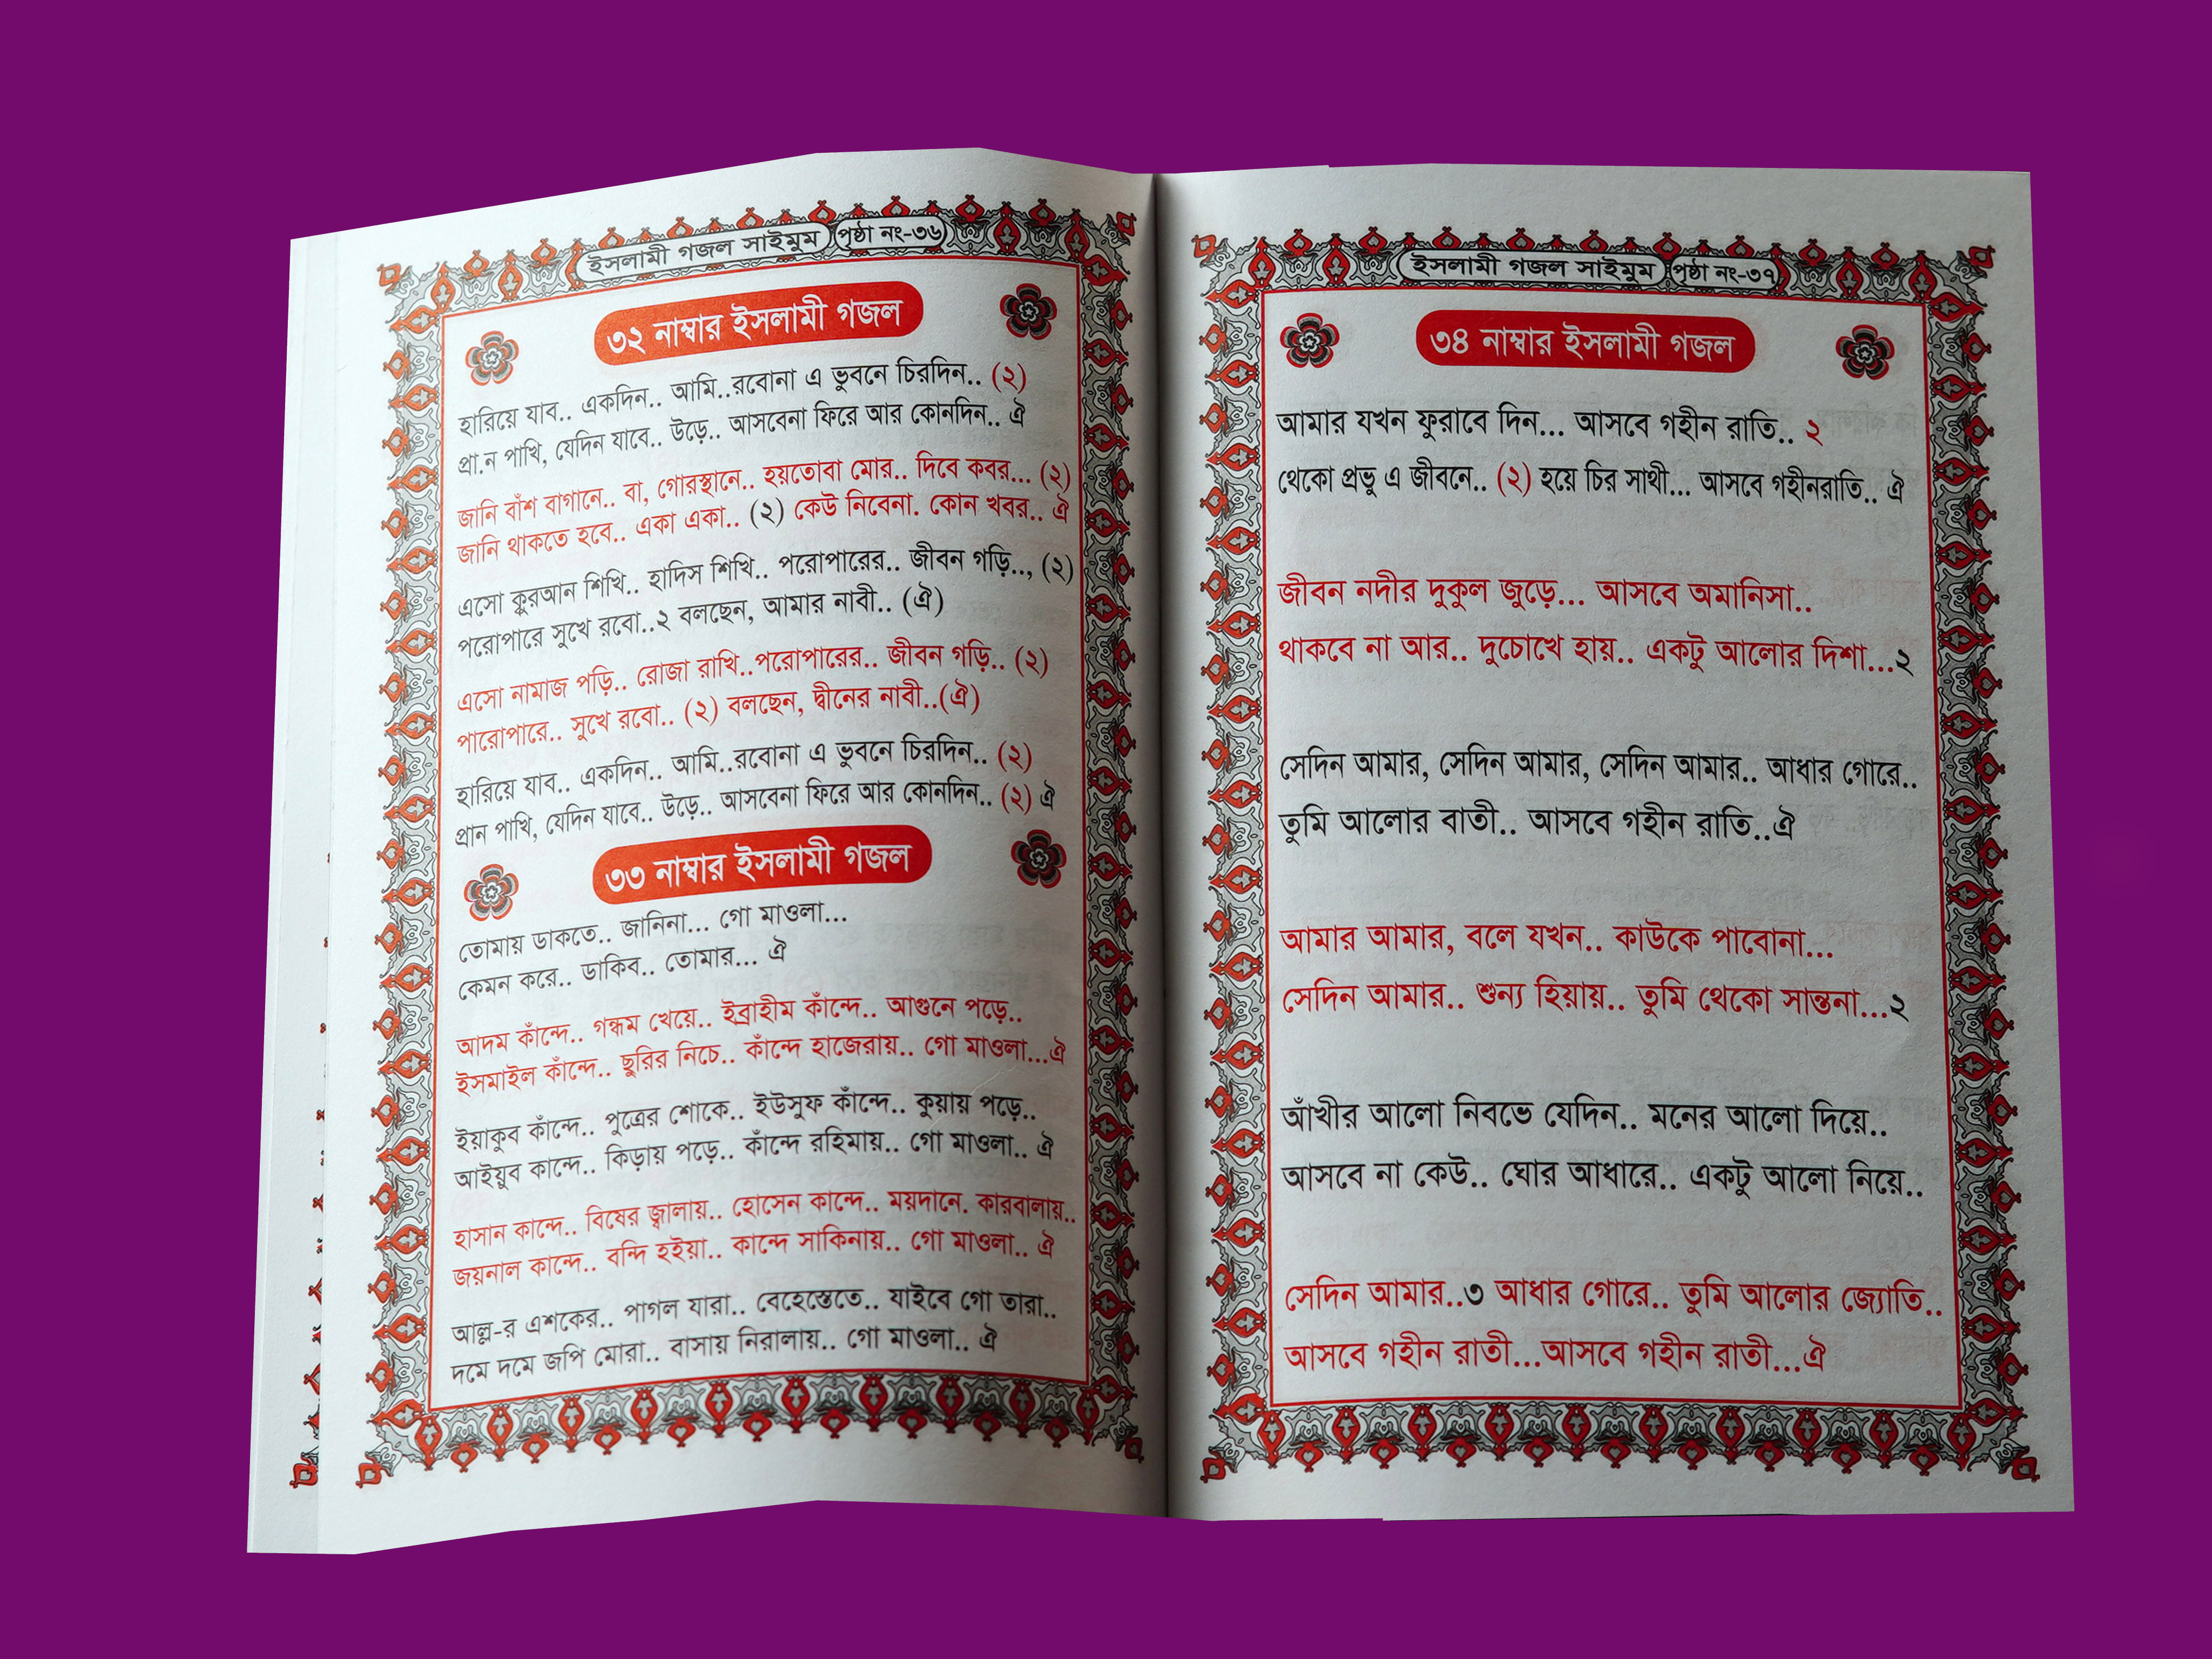 ইসলামী গজল সাইমুম পৃষ্ঠা নং-৩৬
৩২ নাম্বার ইসলামী গজল
হারিয়ে যাব.. একদিন.. আমি..রবোনা এ ভুবনে চিরদিন.. (২)
প্রা.ন পাখি, যেদিন যাবে.. উড়ে.. আসবেনা ফিরে আর কোনদিন.. ঐ
জানি বাঁশ বাগানে.. বা, গোরস্থানে.. হয়তোবা মোর.. দিবে কবর... (২)
জানি থাকতে হবে.. একা একা.. (২) কেউ নিবেনা. কোন খবর.. ঐ
এসো কুরআন শিখি.. হাদিস শিখি.. পরোপারের.. জীবন গড়ি.., (২)
পরোপারে সুখে রবো..২ বলছেন, আমার নাবী.. (ঐ)
এসো নামাজ পড়ি.. রোজা রাখি..পরোপারের.. জীবন গড়ি.. (২)
পারোপারে.. সুখে রবো.. (২) বলছেন, দ্বীনের নাবী..(ঐ)
হারিয়ে যাব.. একদিন.. আমি..রবোনা এ ভুবনে চিরদিন.. (২)
প্রান পাখি, যেদিন যাবে.. উড়ে.. আসবেনা ফিরে আর কোনদিন.. (২) ঐ
৩৩ নাম্বার ইসলামী গজল
তোমায় ডাকতে.. জানিনা... গো মাওলা...
কেমন করে.. ডাকিব.. তোমার... ঐ
আদম কাঁন্দে.. গন্ধম খেয়ে.. ইব্রাহীম কাঁন্দে.. আগুনে পড়ে..
ইসমাইল কাঁন্দে.. ছুরির নিচে.. কাঁন্দে হাজেরায়.. গো মাওলা...ঐ
ইয়াকুব কাঁন্দে.. পুত্রের শোকে.. ইউসুফ কাঁন্দে.. কুয়ায় পড়ে..
আইয়ুব কান্দে.. কিড়ায় পড়ে.. কাঁন্দে রহিমায়.. গো মাওলা.. ঐ
হাসান কান্দে.. বিষের জ্বালায়.. হোসেন কান্দে.. ময়দানে. কারবালায়..
জয়নাল কান্দে.. বন্দি হইয়া.. কান্দে সাকিনায়.. গো মাওলা.. ঐ
আল্ল-র এশকের.. পাগল যারা.. বেহেস্তেতে.. যাইবে গো তারা..
দমে দমে জপি মোরা.. বাসায় নিরালায়.. গো মাওলা.. ঐ
ইসলামী গজল সাইমুম পৃষ্ঠা নং-৩৭
৩৪ নাম্বার ইসলামী গজল
আমার যখন ফুরাবে দিন... আসবে গহীন রাতি.. ২
থেকো প্রভু এ জীবনে.. (২) হয়ে চির সাথী... আসবে গহীনরাতি.. ঐ
জীবন নদীর দুকুল জুড়ে... আসবে অমানিসা..
থাকবে না আর.. দুচোখে হায়.. একটু আলোর দিশা...২
সেদিন আমার, সেদিন আমার, সেদিন আমার.. আধার গোরে..
তুমি আলোর বাতী.. আসবে গহীন রাতি..ঐ
আমার আমার, বলে যখন.. কাউকে পাবোনা...
সেদিন আমার.. শুন্য হিয়ায়.. তুমি থেকো সান্তনা...২
আঁখীর আলো নিবভে যেদিন.. মনের আলো দিয়ে..
আসবে না কেউ.. ঘোর আধারে.. একটু আলো নিয়ে..
সেদিন আমার..৩ আধার গোরে.. তুমি আলোর জ্যোতি..
আসবে গহীন রাতী...আসবে গহীন রাতী...ঐ